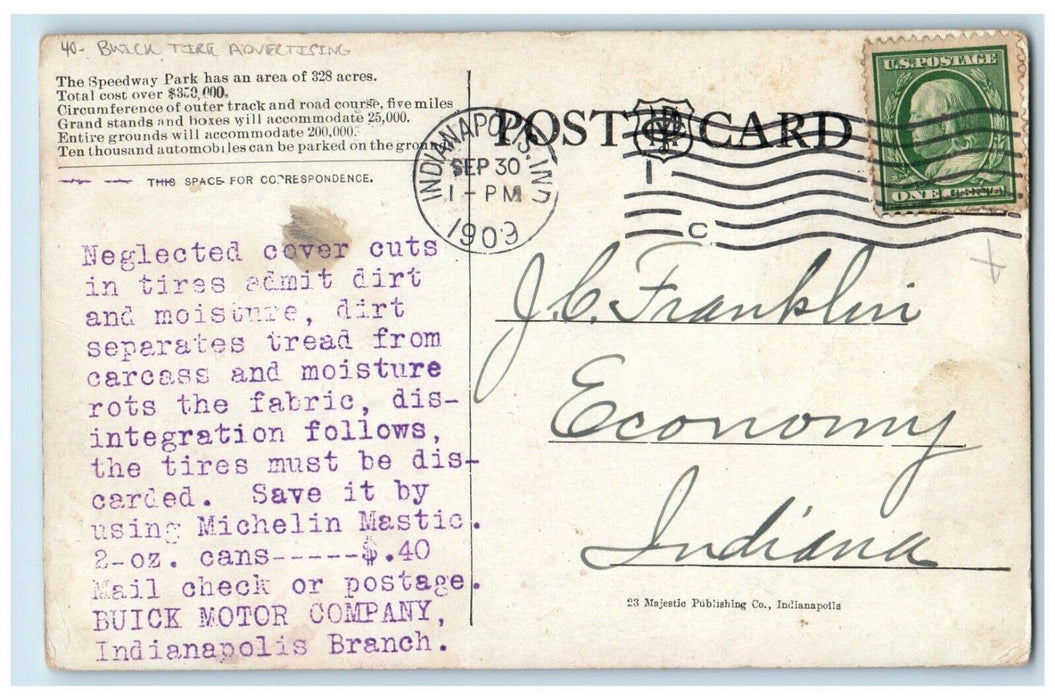 40- BUICK TIRE ADVERTISING
The Speedway Park has an area of 328 acres.
Total cost over $350,000.
Circumference of outer track and road course, five miles
Grand stands and boxes will accommodate 25,000.
Entire grounds will accommodate 200,000.
Ten thousand automobiles can be parked on the grounds
THIS SPACE FOR CORRESPONDENCE.
POST CARD
INDIANAPOLIS, IND
SEP 30
1-PM
1909
I
C
U.S. POSTAGE
ONE CENT
Neglected cover cuts
in tires admit dirt
and moisture, dirt
separates tread from
carcass and moisture
rots the fabric, dis-
integration follows,
the tires must be dis-
carded. Save it by
using Michelin Mastic.
2-oz. cans-----$.40
Mail check or postage.
BUICK MOTOR COMPANY,
Indianapolis Branch.
J. C. Franklin
Economy
Indiana
23 Majestic Publishing Co., Indianapolis